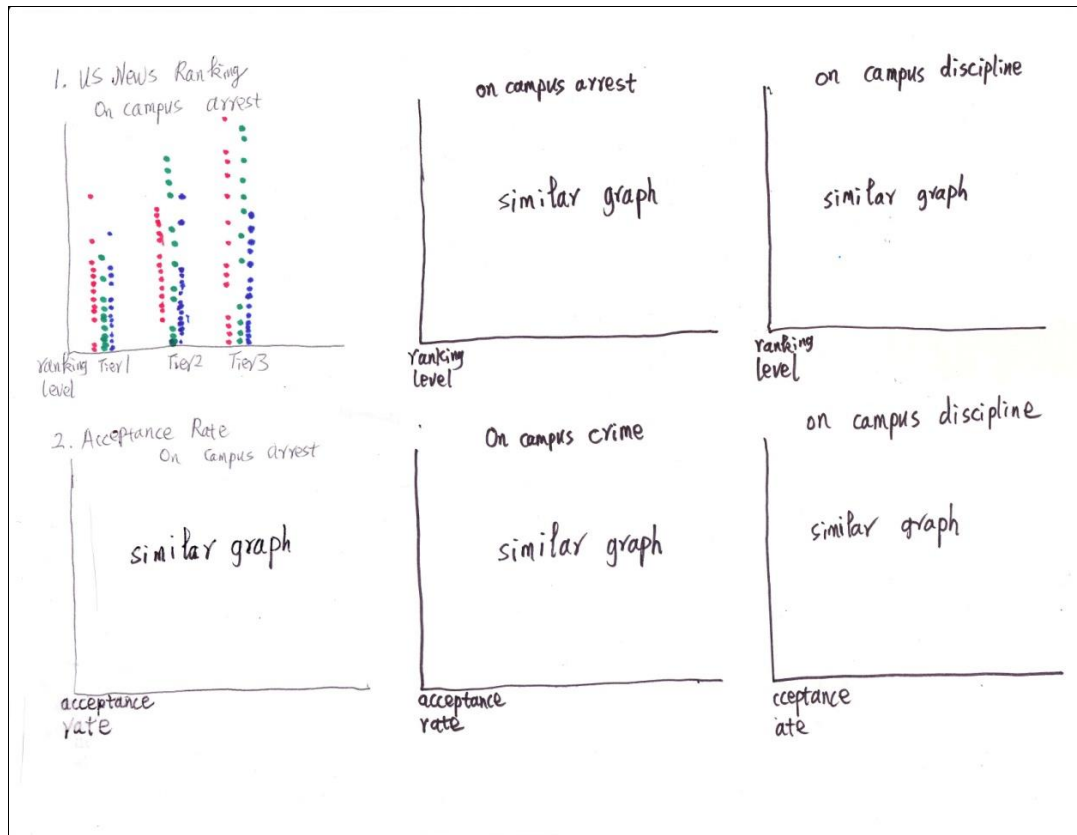 1. US News Ranking
On campus arrest
ranking
level
Tier1
Tier2
Tier3
on campus arrest
similar graph
ranking
level
on campus discipline
similar graph
ranking
level
2. Acceptance Rate
On campus arrest
similar graph
acceptance
rate
On campus crime
similar graph
acceptance
rate
on campus discipline
similar graph
cceptance
ate